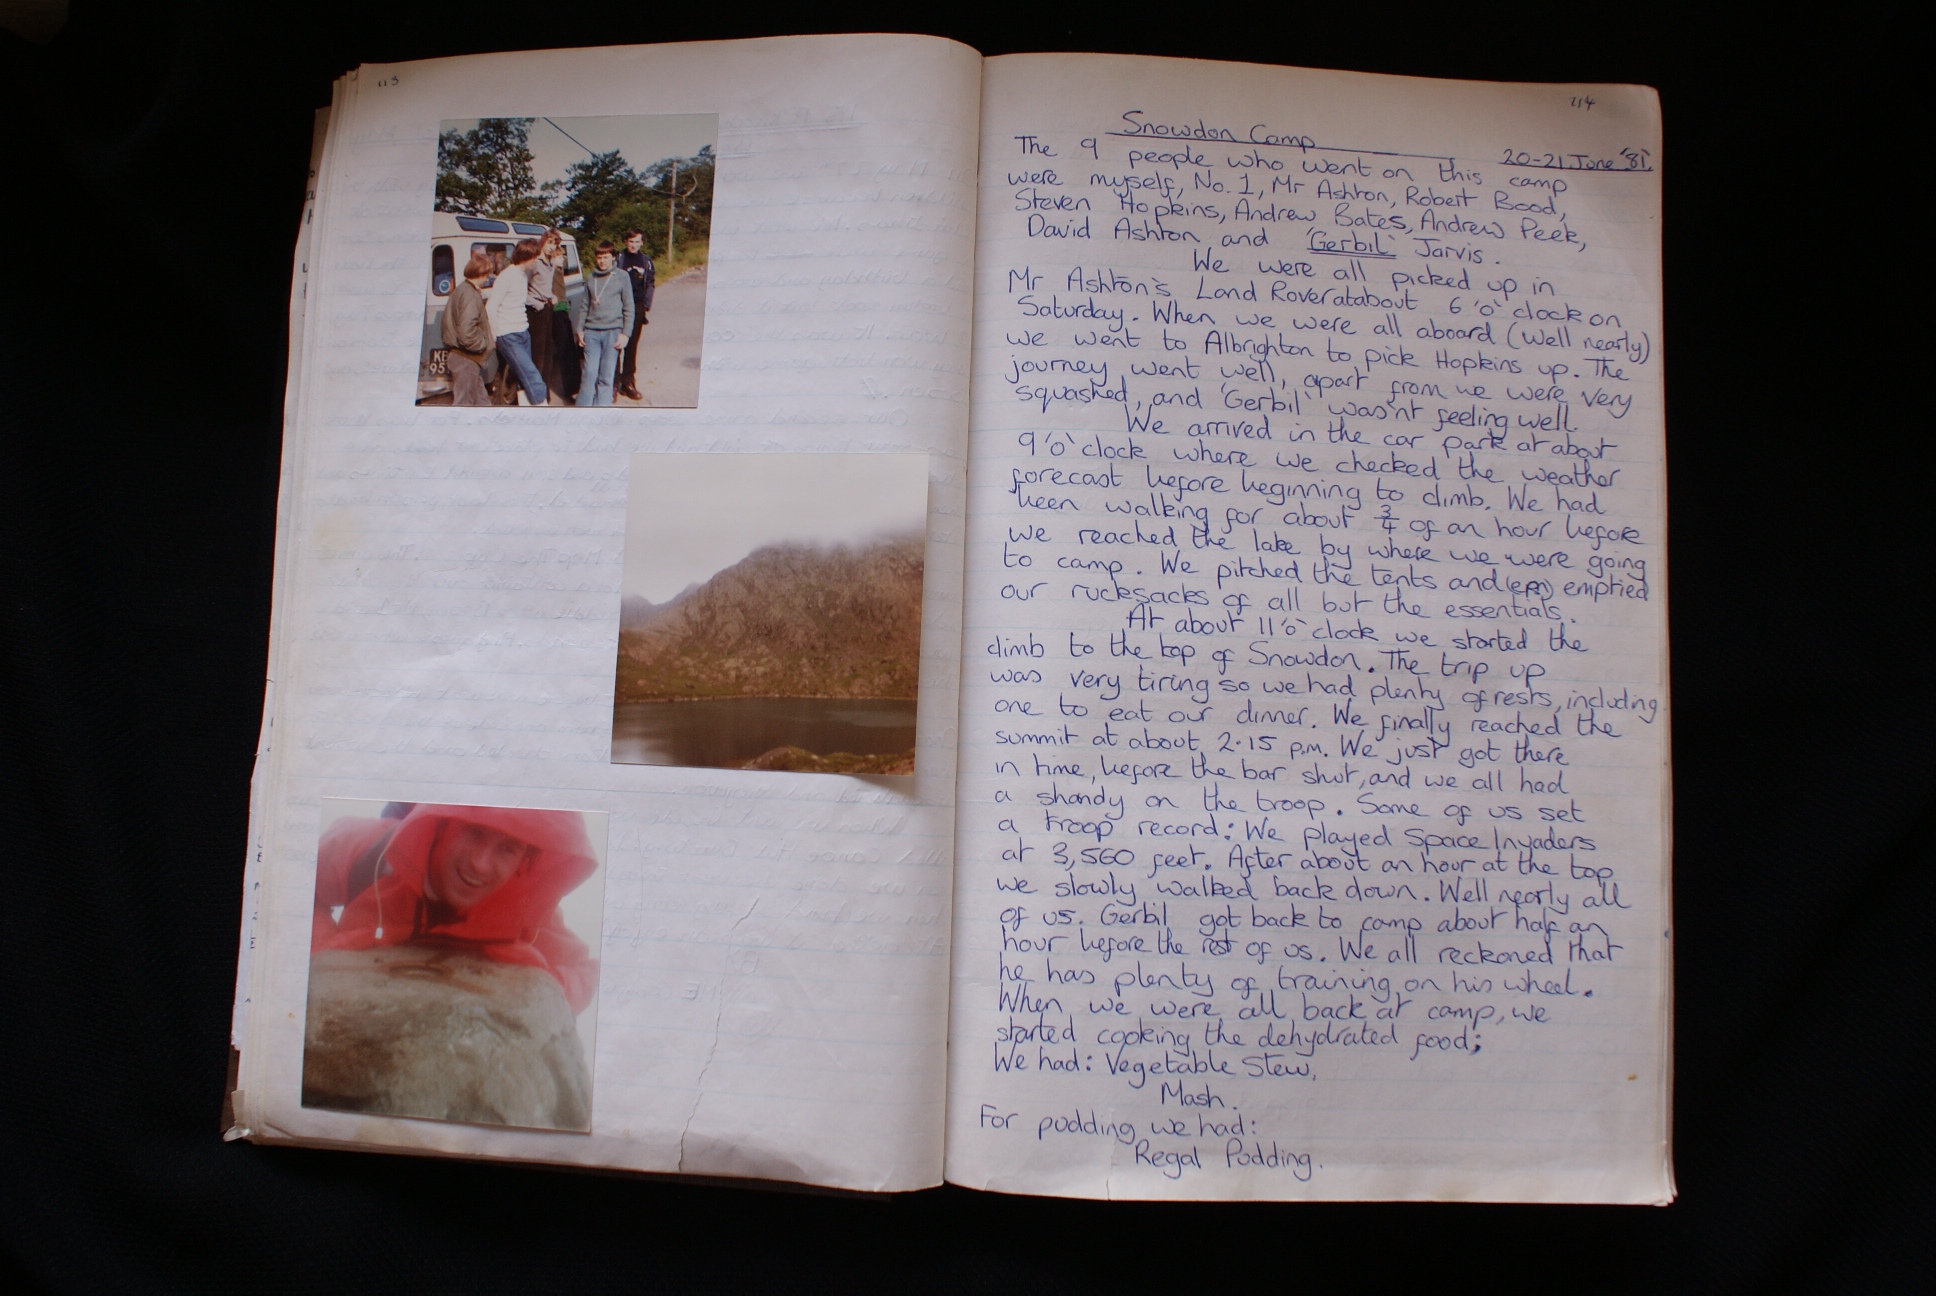 113
KE
95
114
Snowdon Camp
20-21 June '81.
The 9 people who went on this camp
were myself, No. 1, Mr Ashton, Robert Bood,
Steven Hopkins, Andrew Bates, Andrew Peek,
David Ashton and 'Gerbil' Jarvis.
We were all picked up in
Mr Ashton's Land Rover at about 6 'o' clock on
Saturday. When we were all aboard (Well nearly)
we went to Albrighton to pick Hopkins up. The
journey went well, apart from we were very
squashed, and 'Gerbil' was'nt feeling well.
We arrived in the car park at about
9 'o' clock where we checked the weather
forecast before beginning to climb. We had
been walking for about 3/4 of an hour before
we reached the lake by where we were going
to camp. We pitched the tents and (em) emptied
our rucksacks of all but the essentials.
At about 11 'o' clock we started the
climb to the top of Snowdon. The trip up
was very tiring so we had plenty of rests, including
one to eat our dinner. We finally reached the
summit at about 2.15 p.m. We just got there
in time, before the bar shut, and we all had
a shandy on the troop. Some of us set
a troop record: We played Space Invaders
at 3,560 feet. After about an hour at the top
we slowly walked back down. Well nearly all
of us. Gerbil got back to camp about half an
hour before the rest of us. We all reckoned that
he has plenty of training on his wheel.
When we were all back at camp, we
started cooking the dehydrated food;
We had: Vegetable Stew,
Mash.
For pudding we had:
Regal Pudding.